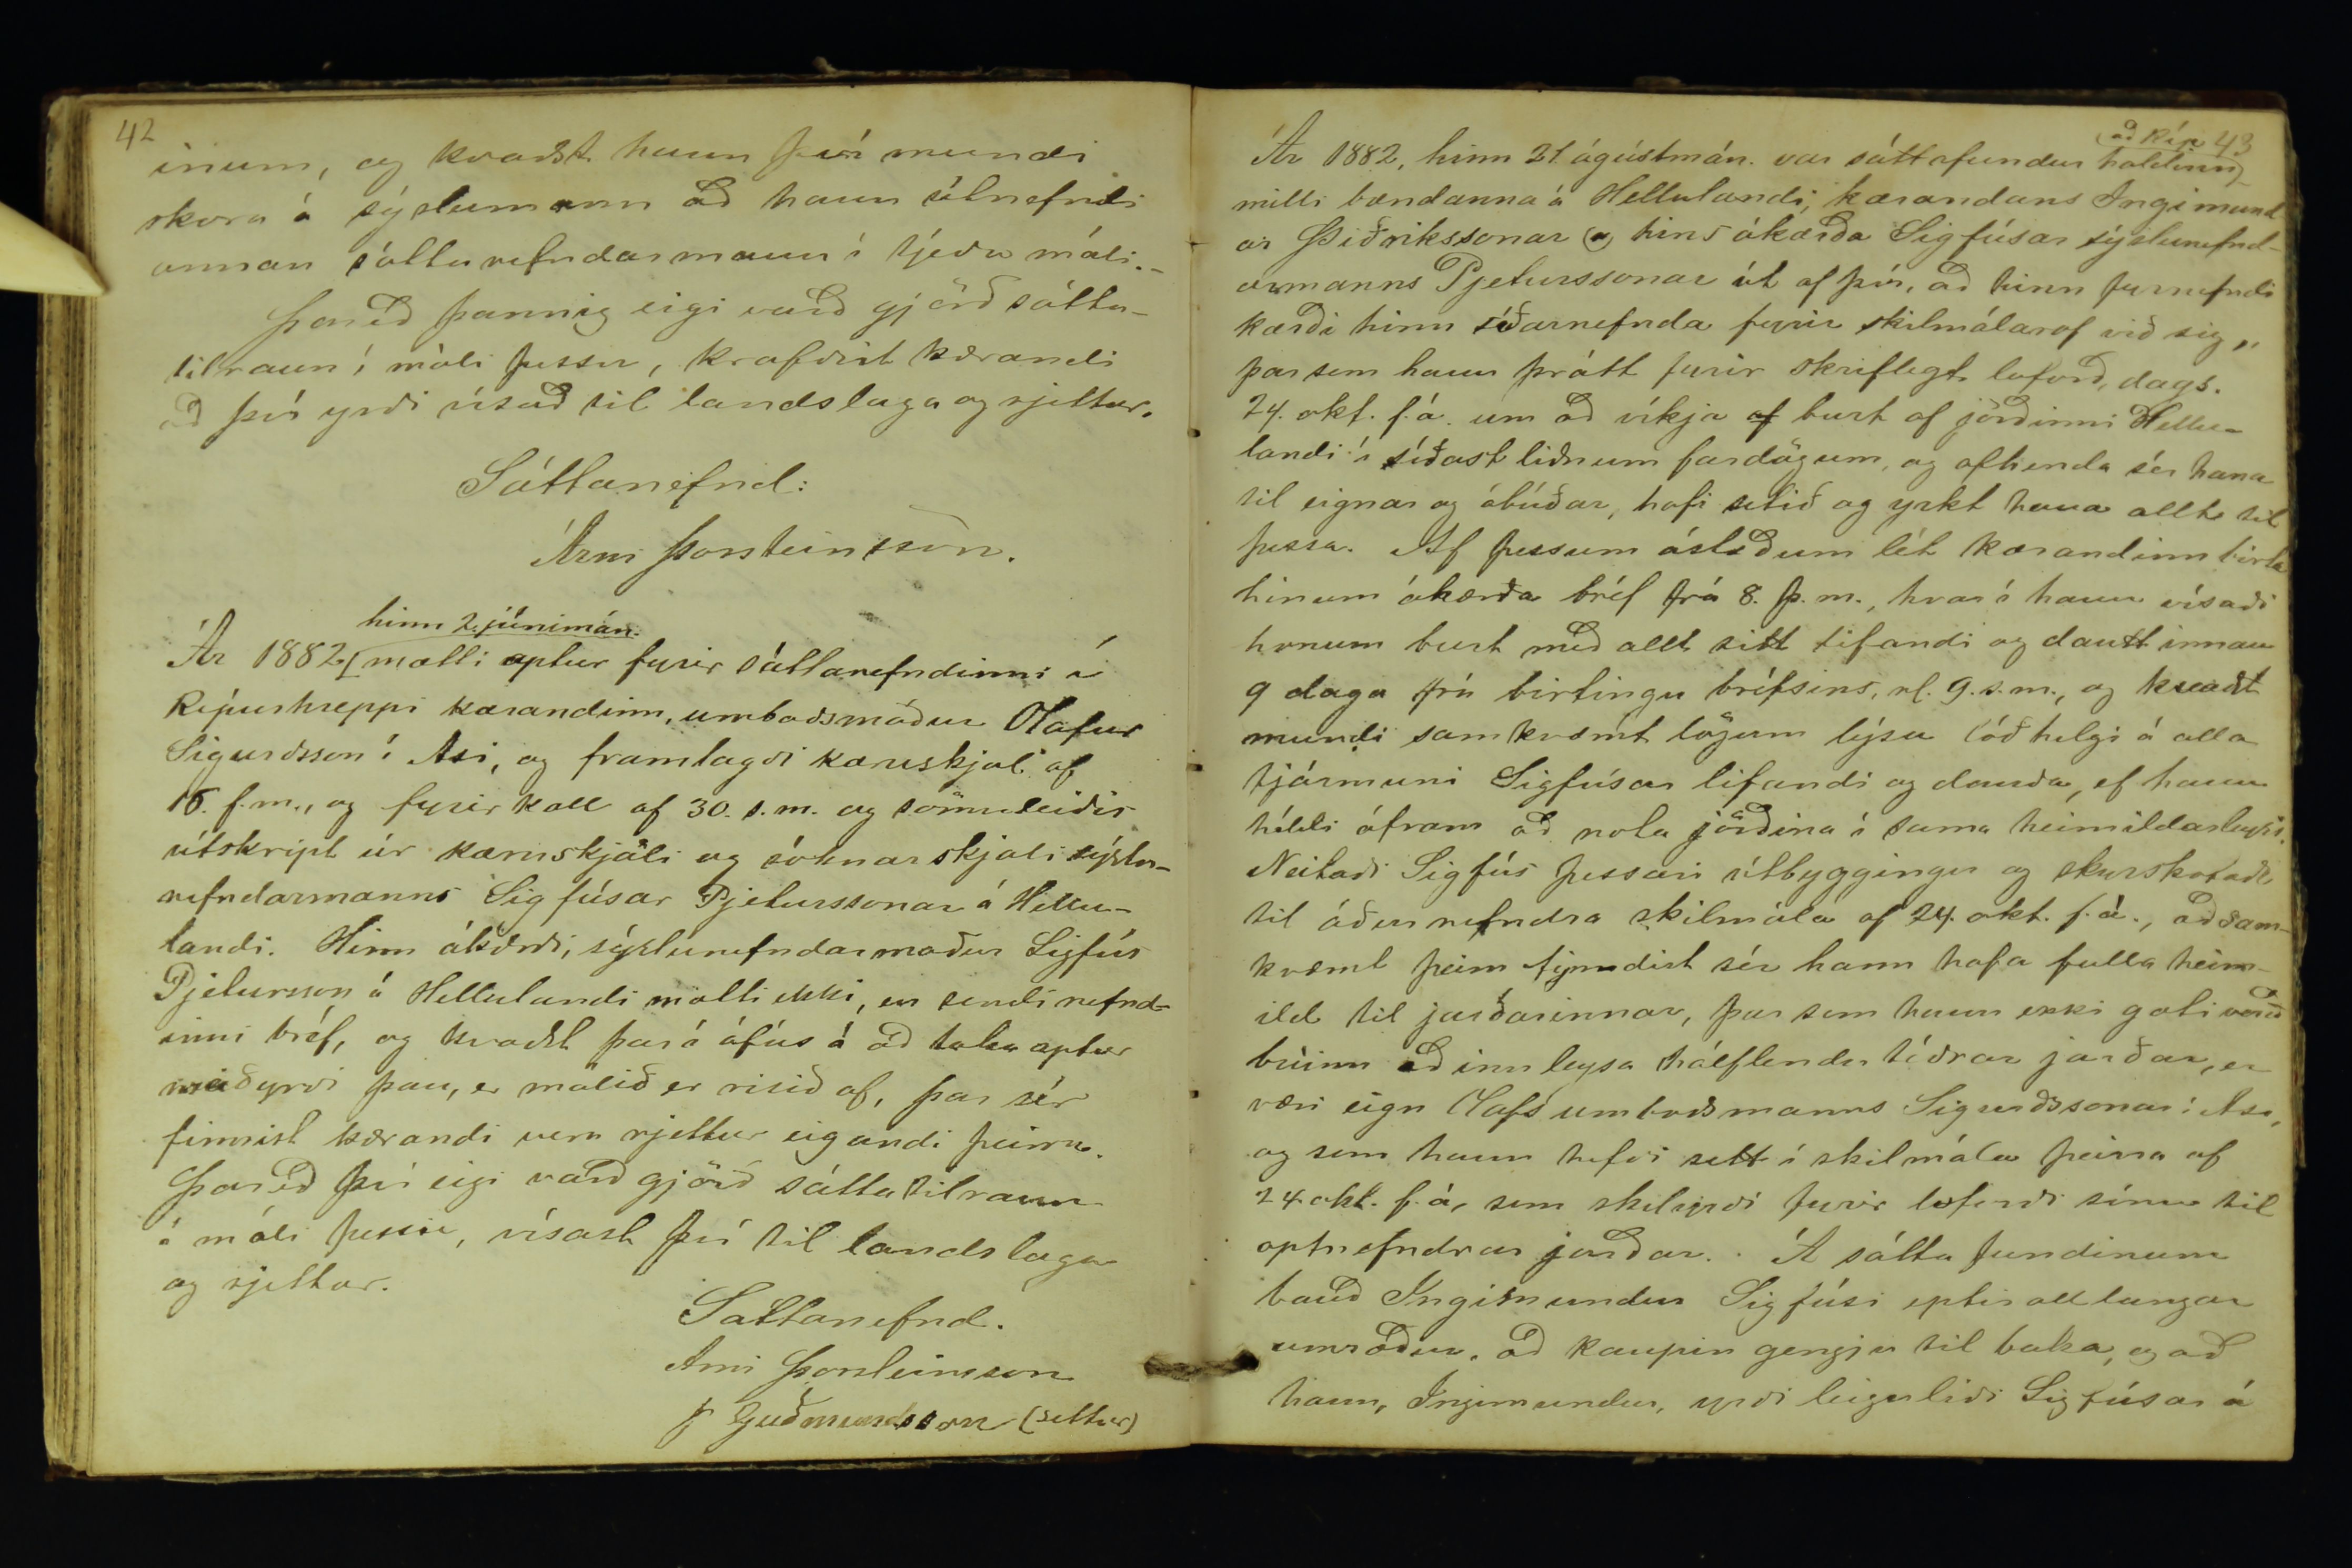 42
inum, og kvaðst hann því mundi
skora á sýslumann að hann útnefndi
annan sáttanefndarmann í tjeðu máli.-
Þareð þannig eigi varð gjörð sátta-
tilraun í máli þessu, krafðist kærandi
að því yrði vísað til landslaga og rjettar.
Sáttanefnd:
Árni Þorsteinsson.
hinn 2. júnímán.
Ár 1882 mætti aptur fyrir sáttanefndinni í
Rípurhreppi kærandinn, umboðsmaður Olafur
Sigurðsson í Asi, og framlagði kæruskjal af
16. f.m., og fyrirkall af 30. s.m. og sömuleiðis
útskript úr kæruskjali og sóknarskjali sýslu-
nefndarmanns Sigfúsar Pjeturssonar á Hellu-
landi. Hinn ákærði, sýslunefndarmaður Sigfús
Pjetursson á Hellulandi mætti ekki, en sendi nefnd-
inni bréf, og kvaðst þar á ófús á að taka aptur
meiðyrði þau, er málið er risið af, þar sér
finnist kærandi vera rjettur eigandi þeirra.
Þareð því eigi varð gjörð sáttatilraun
í máli þessu, vísast því til landslaga
og rjettar.
Sáttanefnd.
Arni Þorsteinsson
J Guðmundsson (settur)
að Ríp 43
Ár 1882, hinn 21 ágústmán. var sáttafundur haldinn
milli bændanna á Hellulandi, kærandans Ingimund
ar Þiðrikssonar og hins ákærða Sigfúsar sýslunefnd-
armanns Pjeturssonar út af því, að hinn fyrnefndi
kærði hinn síðarnefnda fyrir skilmálarof við sig,
þar sem hann þrátt fyrir skriflegt loforð, dags.
24. okt. f. á. um að víkja af burt af jörðinni Hellu-
landi í síðast liðnum fardögum, og afhenda sér hana
til eignar og ábúðar, hafi setið og yrkt hana allt til
þessa. Af þessum ástæðum lét kærandinn birta
hinum ákærða bréf frá 8. þ. m., hvar í hann vísaði
honum burt með allt sitt lifandi og dautt innan
9 daga frá birtingu bréfsins, nl. 9. s. m., og kvaðst
mundi samkvæmt lögum lýsa lóðhelgi á alla
fjármuni Sigfúsar lifandi og dauða, ef hann
héldi áfram að nota jörðina í sama heimildarleysi.
Neitaði Sigfús þessari útbyggingu og skurskotaði
til áðurnefndra skilmála af 24. okt. f. á., að sam-
kvæmt þeim fyndist sér hann hafa fulla heim-
ild til jarðarinnar, þar sem hann ekki gæti verið
búinn að innleysa hálflendu téðrar jarðar, er
væri eign Olafs umboðsmanns Sigurðssonar í Asi,
og sem hann hefði sett í skilmála þeirra af
24. okt. f. á, sem skilyrði fyrir loforði sínu til
optnefndrar jarðar. Á sáttafundinum
bauð Ingimundur Sigfúsi eptir all langar
umræður, að kaupin gengju til baka, og að
hann, Ingimundur, yrði leiguliði Sigfúsar á